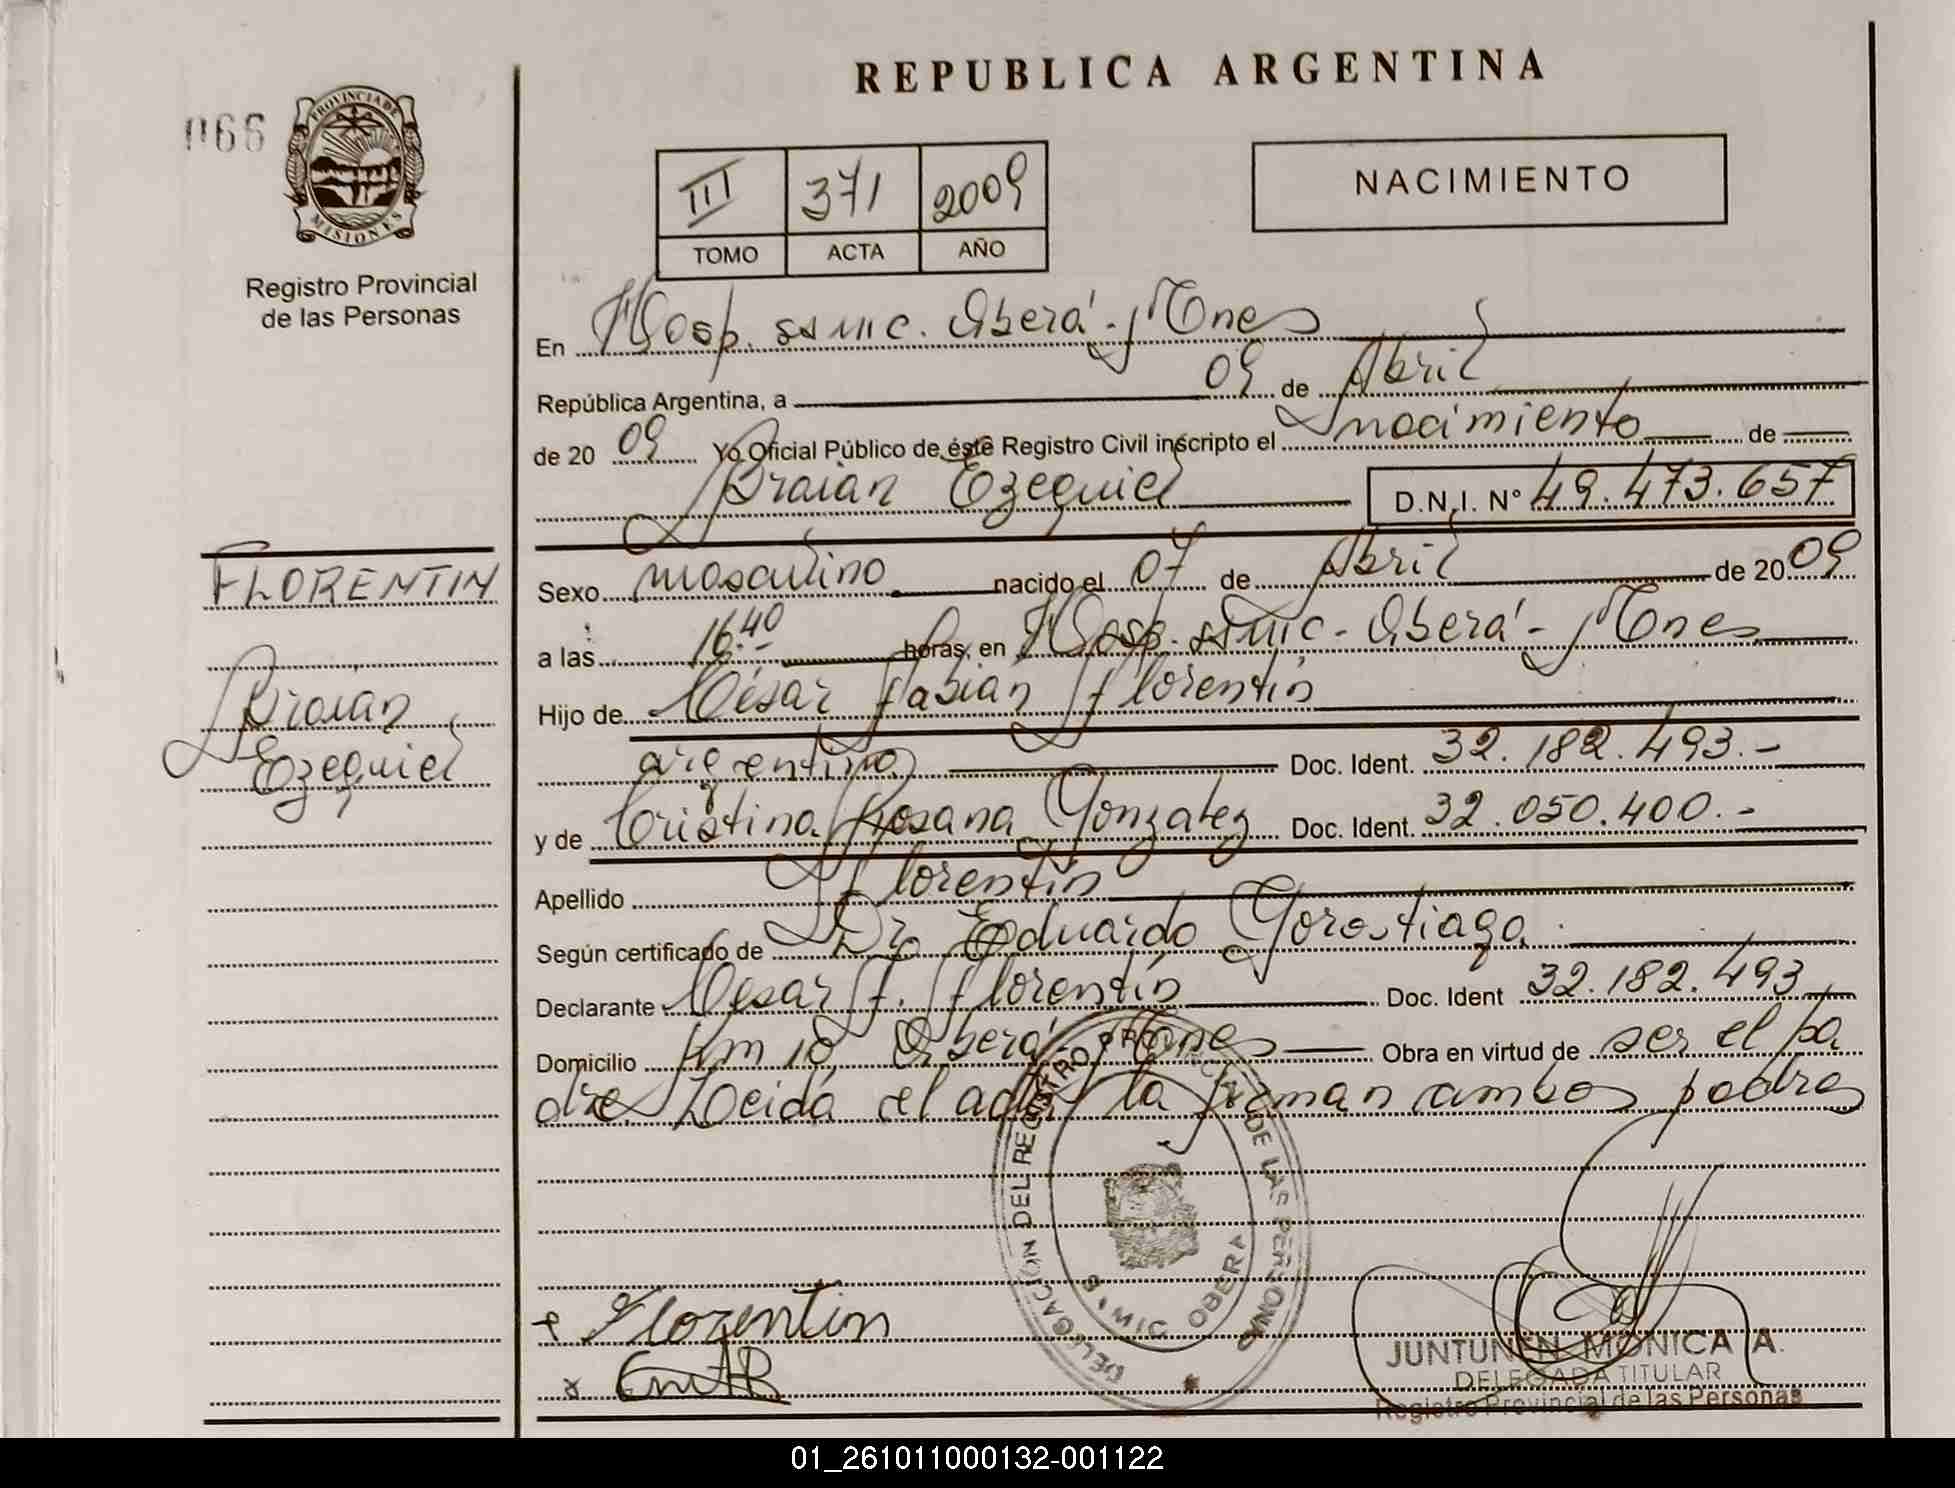 REPUBLICA ARGENTINA
066
PROVINCIA DE
MISIONES
Registro Provincial
de las Personas
III 371 2009
TOMO ACTA AÑO
NACIMIENTO
En Hosp. SAMIC. Oberá - Mnes
República Argentina, a 09 de Abril
de 20 09 Yo Oficial Público de éste Registro Civil inscripto el nacimiento de
Braian Ezequiel D.N.I. N° 49.473.657
FLORENTIN
Braian
Ezequiel
Sexo masculino nacido el 07 de Abril de 20 09
a las 16:40 horas, en Hosp. SAMIC - Oberá - Mnes
Hijo de César Fabián Florentín
argentino Doc. Ident. 32.182.493.-
y de Cristina Rosana Gonzalez Doc. Ident. 32.050.400.-
Apellido Florentín
Según certificado de Dr. Eduardo Gorostiaga
Declarante César F. Florentín Doc. Ident 32.182.493
Domicilio Km 10 Oberá - Mnes Obra en virtud de ser el pa
dre. Leída el acta la firman ambos padres
DELEGACIÓN DEL REGISTRO PROVINCIAL DE LAS PERSONAS
OBERA
Florentin
JUNTUNEN MONICA A.
DELEGADA TITULAR
Registro Provincial de las Personas
01_261011000132-001122